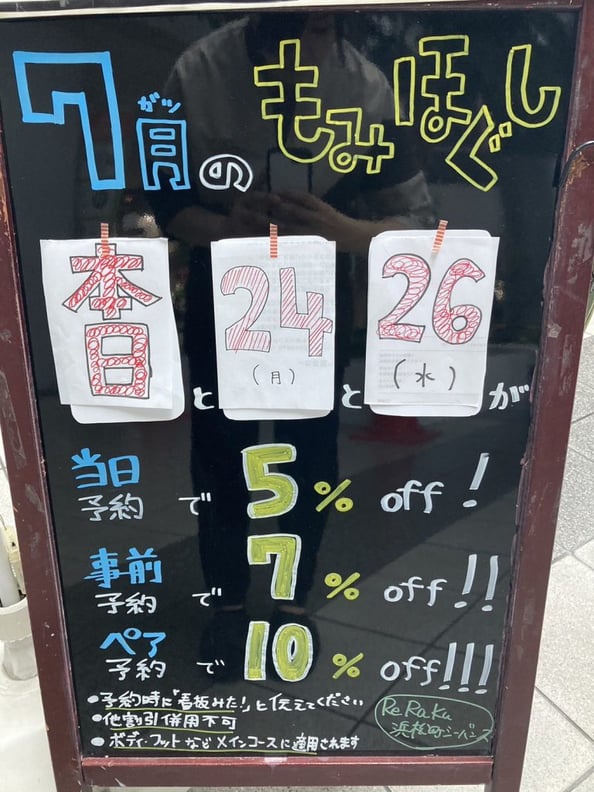 7月の もみほぐし
ガツ
本日と24と26が
(月) (水)
当日
予約で 5% off!
事前
予約で 7% off!!
ペア
予約で 10% off!!!
•予約時に「看板みた!」と伝えてください
•他割引併用不可
•ボディ・フットなどメインコースに適用されます
Re.Ra.Ku
浜松町シーバンス